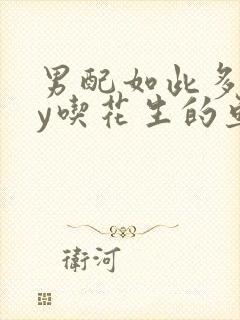 男配如此多
y喫花生的
衛河